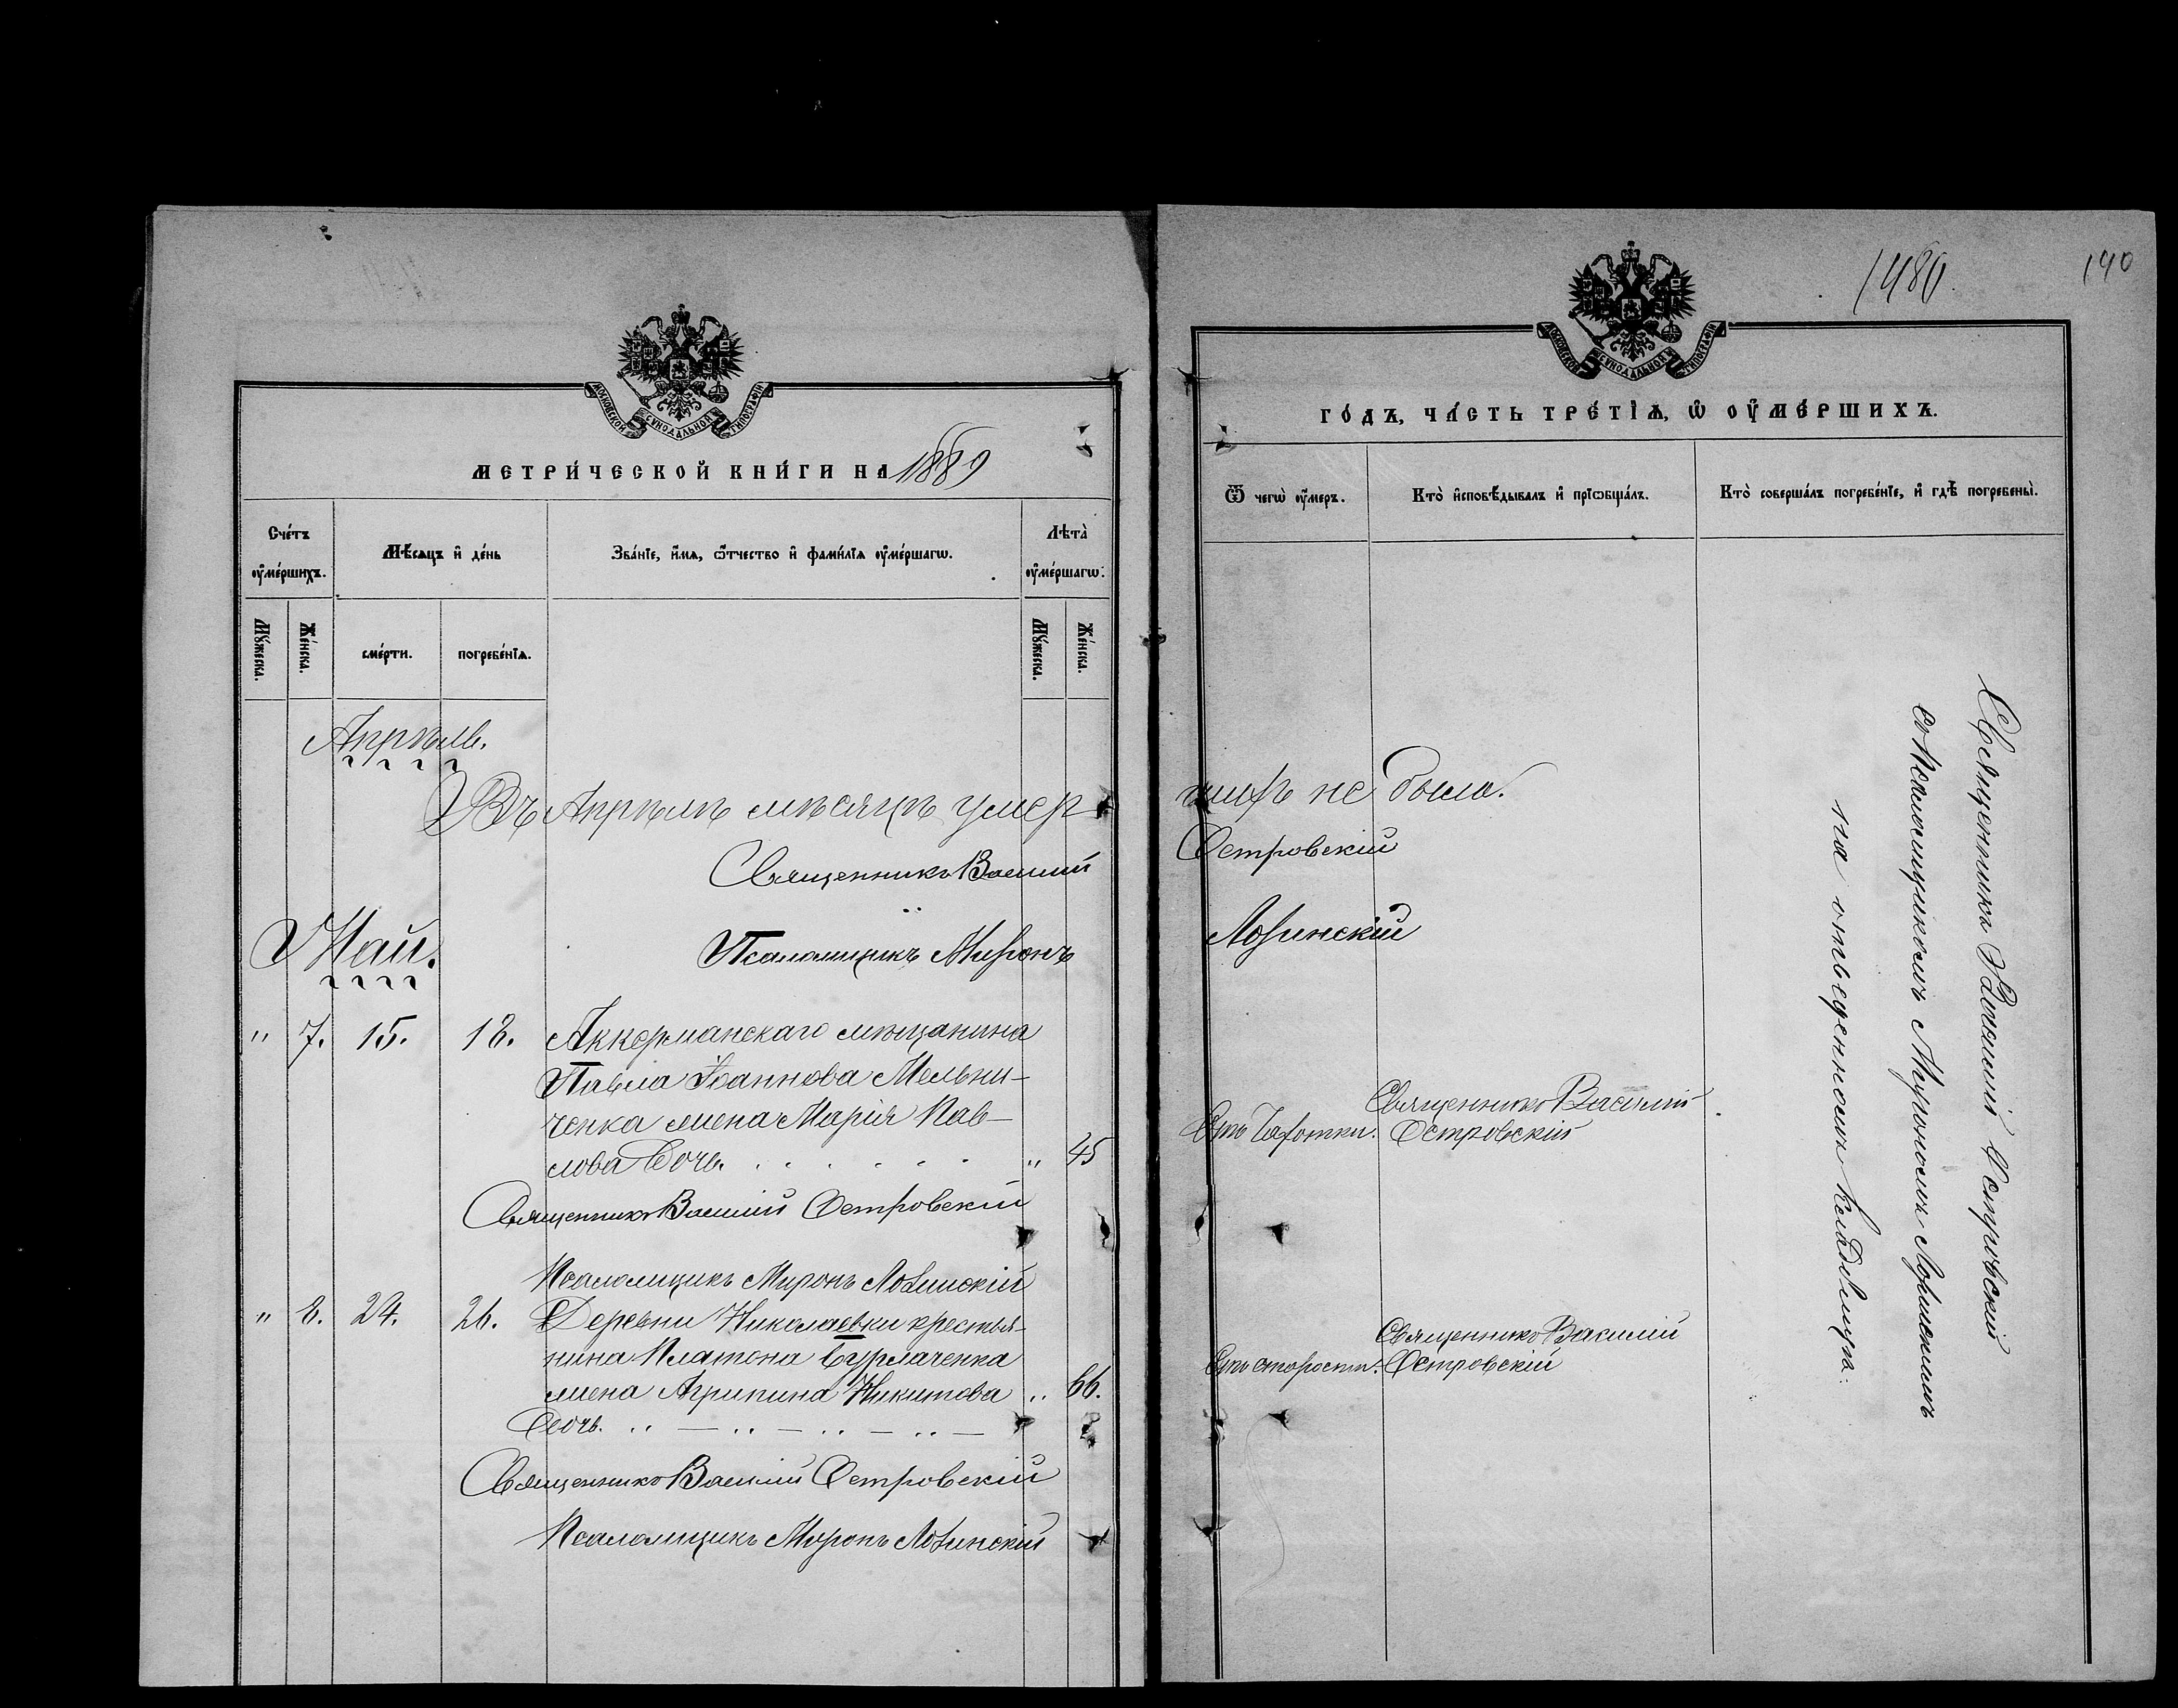 МОСКОВСКОЙ СѴНОДАЛЬНОЙ ТИПОГРАФІИ
МЕТРИ́ЧЕСКОЙ КНИ́ГИ НА 1889
Сче́тъ ᲂу҆ме́ршихъ.
Мѣ́сяцъ и҆ де́нь
Зва́нїе, и҆́мѧ, ѻ҆́тчество и҆ фамі́лїѧ ᲂу҆ме́ршагѡ.
Лѣта̀ ᲂу҆ме́ршагѡ.
Мꙋ́жеска.
Же́нска.
сме́рти.
погребе́нїѧ.
Мꙋ́жеска.
Же́нска.
Апрѣль.
Въ Апрѣлѣ мѣсяцѣ умер-
Священникъ Василій
Май.
Псаломщикъ Миронъ
" 7. 15. 18. Аккерманскаго мѣщанина
Павла Іоаннова Мельни-
ченка жена Марія Пав-
лова Сочь. " 45
Священникъ Василій Островскій
Псаломщикъ Миронъ Лозинскій
" 8. 24. 26. Деревни Николаевки крестья-
нина Платона Бурлаченка
жена Агрипина Никитова " 66.
Сочь.
Священникъ Василій Островскій
Псаломщикъ Миронъ Лозинскій
1480
140
МОСКОВСКОЙ СѴНОДАЛЬНОЙ ТИПОГРАФІИ
ГО́ДЪ, ЧА́СТЬ ТРЕ́ТЇѦ, Ѡ҆ ОУ҆МЕ́РШИХЪ.
Ѿ чегѡ̀ ᲂу҆́меръ.
Кто̀ и҆сповѣ́дывалъ и҆ прїѡбща́лъ.
Кто̀ соверша́лъ погребе́нїе, и҆ гдѣ̀ погребены̀.
шихъ не было.
Островскій
Лозинскій
Священникъ Василій
Отъ Чахотки. Островскій
Священникъ Василій
Отъ старости. Островскій
Священникъ Василій Островскій
съ Псаломщикомъ Мирономъ Лозинскимъ
на отведенномъ кладбищѣ.